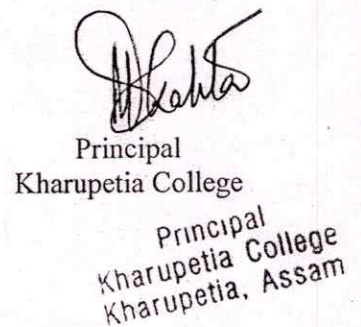 Principal
Kharupetia College
Principal
Kharupetia College
Kharupetia, Assam